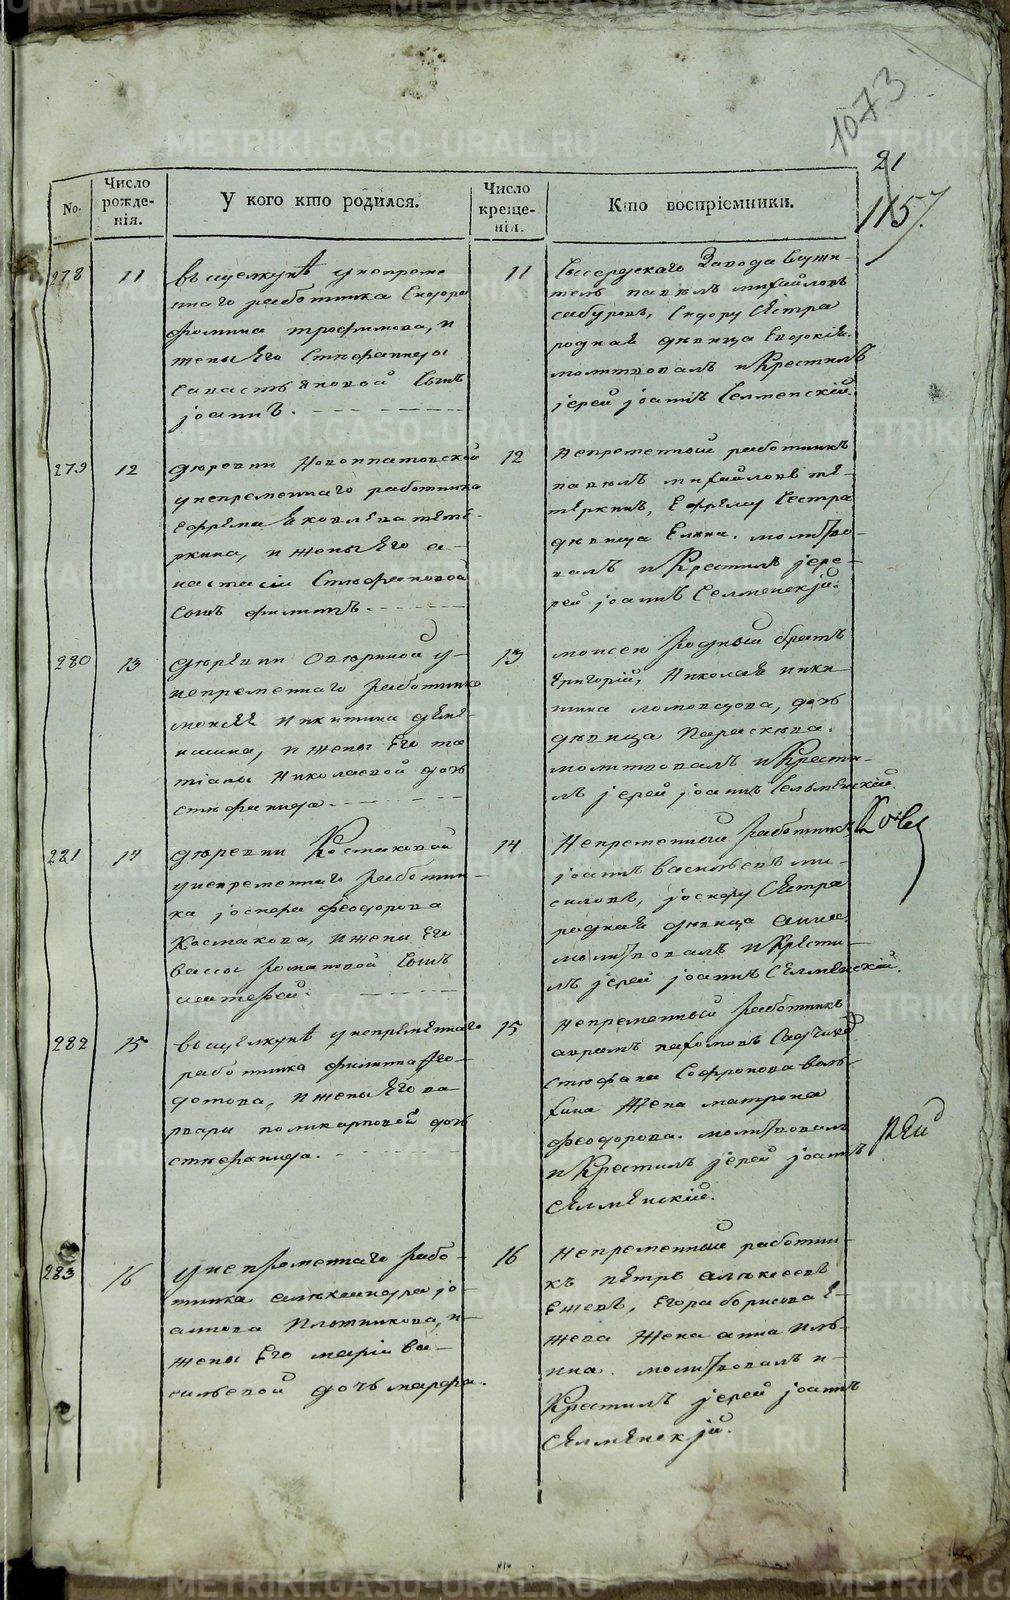 1073
21
1157.
No.
Число рожденія.
У кого кто родился.
Число крещенія.
Кто воспріемники.
278
11
въ щелкунѣ у непреме
ннаго работника Сидора
Фомина трофимова, и
жены Его Стефаниды
Савастьяновой Сынъ
јоаннъ.
11
Сысердскаго Завода Служи-
тель павелъ михайловъ
сабуровъ, Сидору Сестра
родная дѣвица Евдокія.
молитвовалъ и Крестилъ
јерей јоаннъ Селменскій.
279
12
деревни Новоипатовской
у непременнаго работника
Ефрема Яковлева тете-
ркина, и жены Его а-
настасіи Стефановой
Сынъ филиппъ.
12
Непременный работникъ
павелъ михайловъ те-
теркинъ, Ефрему Сестра
дѣвица Елена. молитво-
валъ и Крестилъ јере-
рей јоаннъ Селменскји.
280
13
деревни Аверинской у
непременнаго работника
моисея Никитина
и жены Его та
тіаны Николаевой дочь
стефанида
13
моисею родный братъ
Григорій, Николая ники-
тина дочь
дѣвица Параскева.
молитвовалъ и Крести-
лъ јерей јоаннъ Сельменскій.
281
14
деревни Космаковой
у непременнаго работни-
ка јосифа феодорова
Космакова, и жены Его
вассы романовой Сынъ
14
Непременный работникъ
јоаннъ васильевъ
јосифу Сестра
родная дѣвица анна.
молитвовалъ и Крести-
лъ јерей јоаннъ Селменскій.
282
15
въ щелкунѣ у непременнаго
работника филиппа Фео-
дотова, и жены Его ва-
рвары поликарповой дочь
стефанида.
15
Непременный работникъ
аврамъ пахомовъ
Стефана Софронова
жена матрона
феодорова. молитвовалъ
и Крестилъ јерей јоаннъ
Селменскій.
рей
283
16
у непременнаго рабо-
тника александра јо-
аннова Плотникова, и
жены Его маріи ва-
сильевой дочь марфа.
16
Непременный работни-
къ петръ алексеевъ
Ежевъ, Егора борисова Е-
жева жена анна иль-
ина. молитвовалъ и
Крестилъ јерей јоаннъ
Селменскји.
METRIKI.GASO-URAL.RU